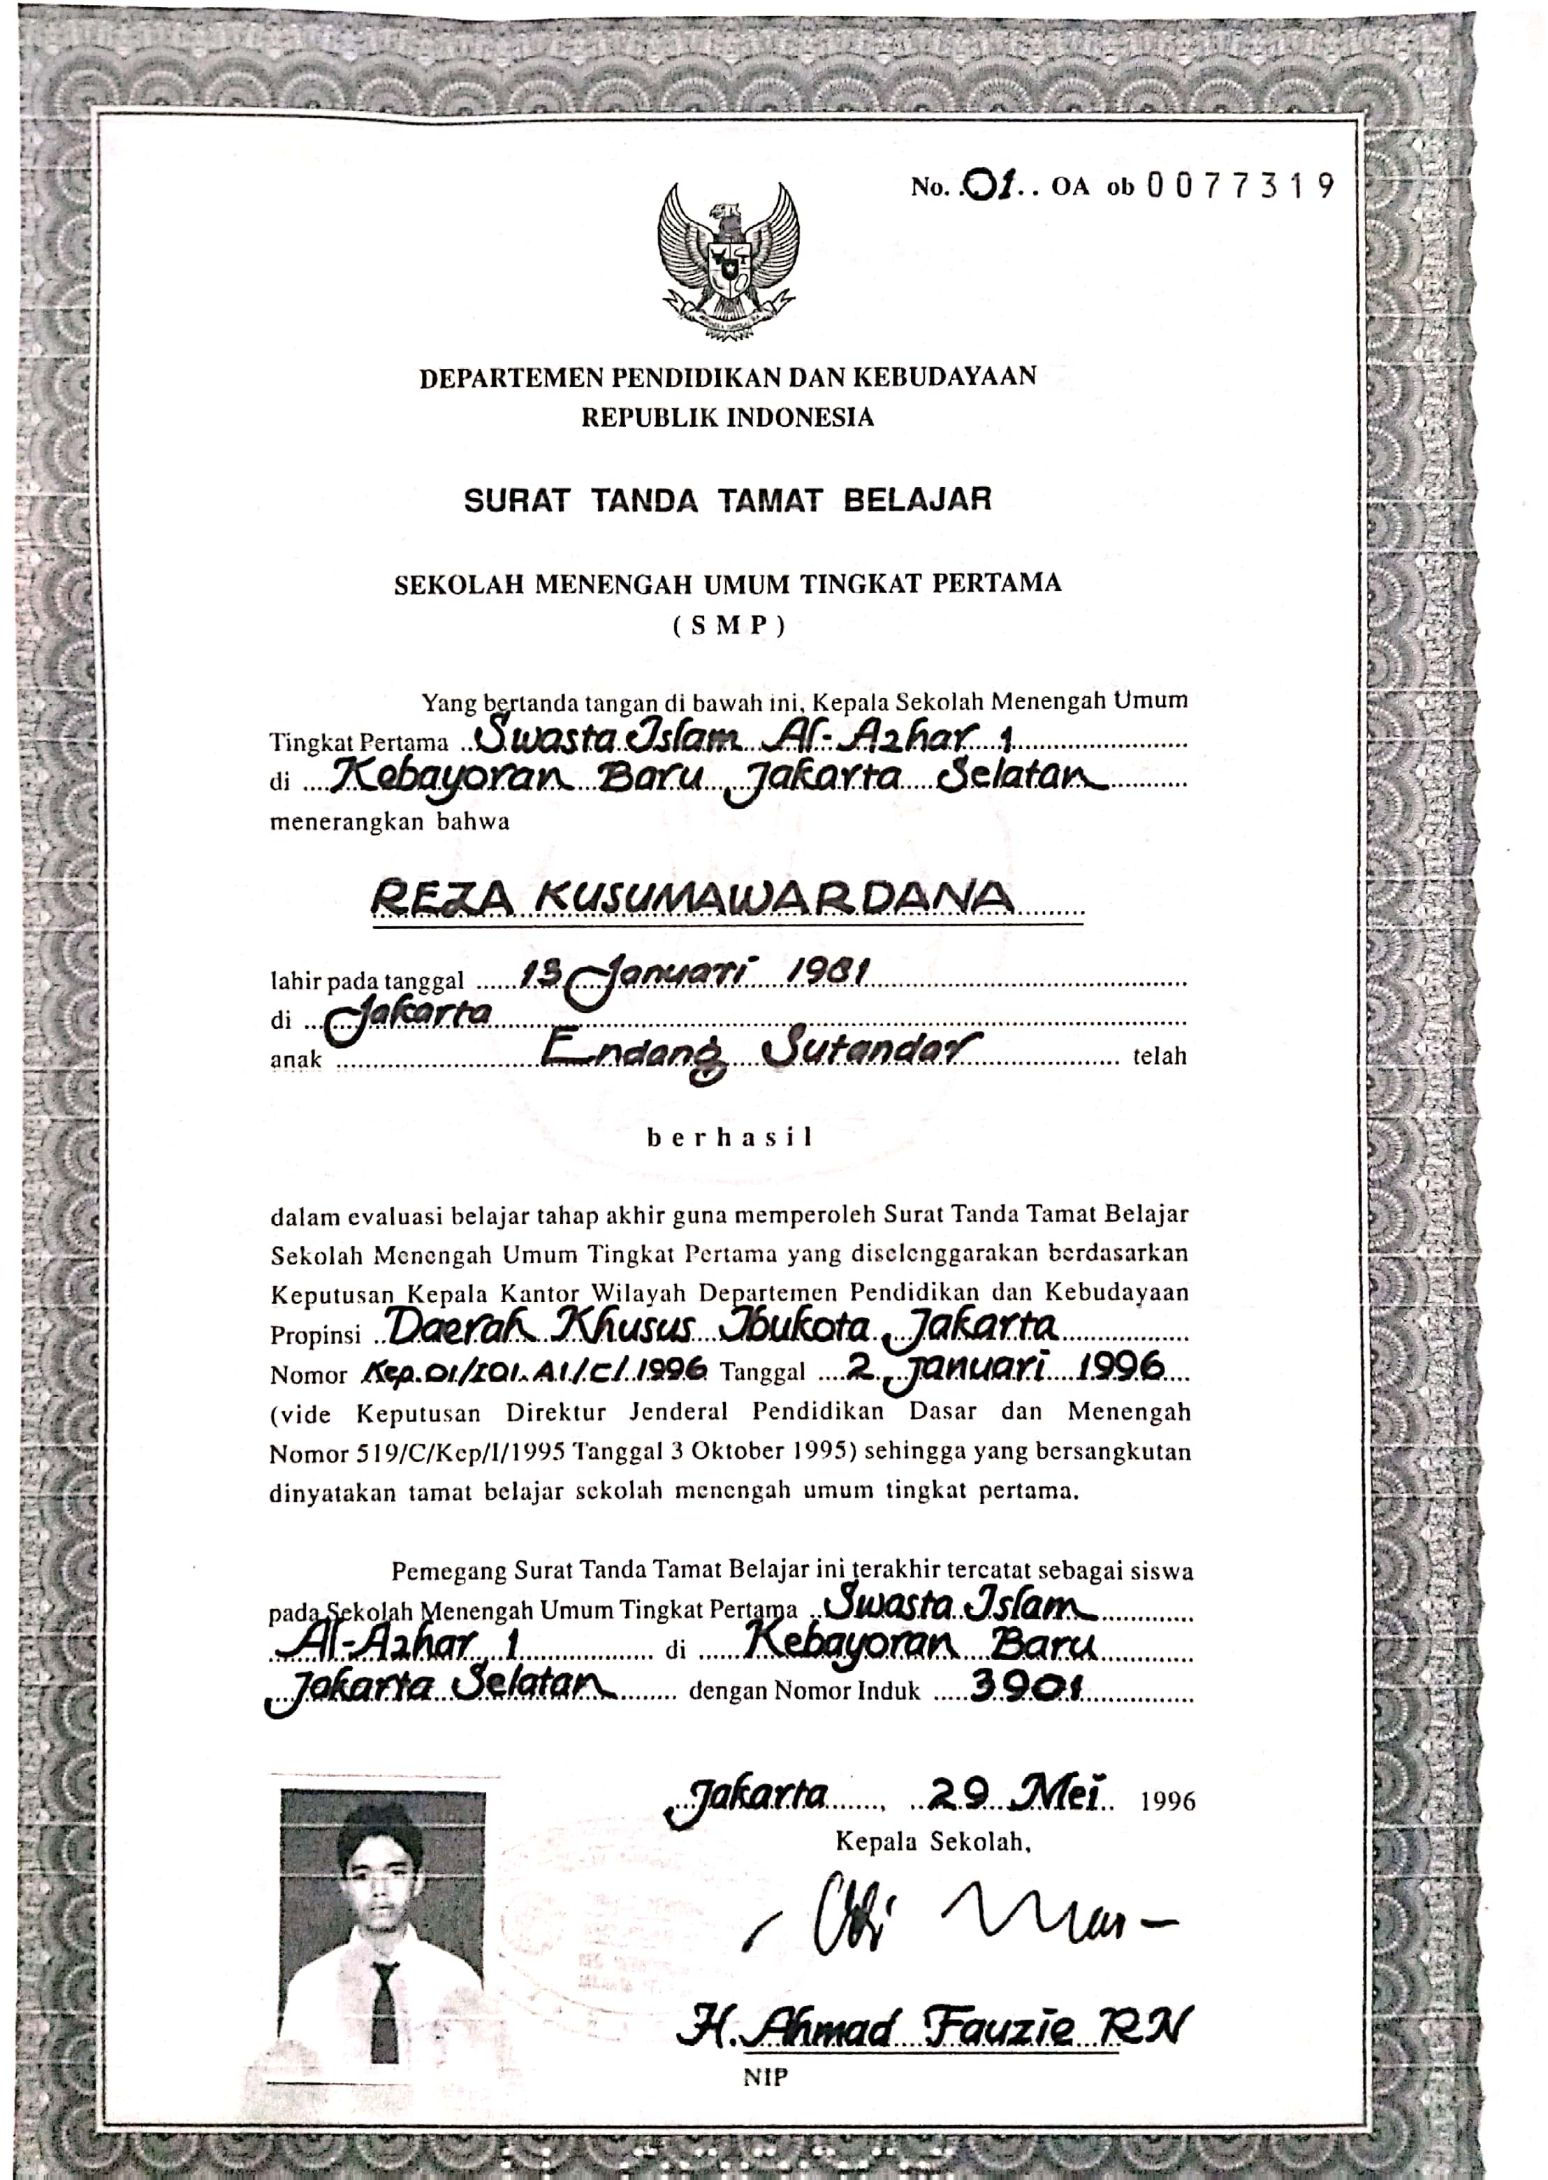 No. 01 OA ob 0077319
DEPARTEMEN PENDIDIKAN DAN KEBUDAYAAN
REPUBLIK INDONESIA
SURAT TANDA TAMAT BELAJAR
SEKOLAH MENENGAH UMUM TINGKAT PERTAMA
( S M P )
Yang bertanda tangan di bawah ini, Kepala Sekolah Menengah Umum
Tingkat Pertama Swasta Islam Al-Azhar 1
di Kebayoran Baru Jakarta Selatan
menerangkan bahwa
REZA KUSUMAWARDANA
lahir pada tanggal 13 Januari 1981
di Jakarta
anak Endang Sutandar telah
berhasil
dalam evaluasi belajar tahap akhir guna memperoleh Surat Tanda Tamat Belajar
Sekolah Menengah Umum Tingkat Pertama yang diselenggarakan berdasarkan
Keputusan Kepala Kantor Wilayah Departemen Pendidikan dan Kebudayaan
Propinsi Daerah Khusus Ibukota Jakarta
Nomor Kep.01/I01.A1/C/1996 Tanggal 2 Januari 1996
(vide Keputusan Direktur Jenderal Pendidikan Dasar dan Menengah
Nomor 519/C/Kep/I/1995 Tanggal 3 Oktober 1995) sehingga yang bersangkutan
dinyatakan tamat belajar sekolah menengah umum tingkat pertama.
Pemegang Surat Tanda Tamat Belajar ini terakhir tercatat sebagai siswa
pada Sekolah Menengah Umum Tingkat Pertama Swasta Islam
Al-Azhar 1 di Kebayoran Baru
Jakarta Selatan dengan Nomor Induk 3901
Jakarta, 29 Mei 1996
Kepala Sekolah,
H. Ahmad Fauzie RN
NIP